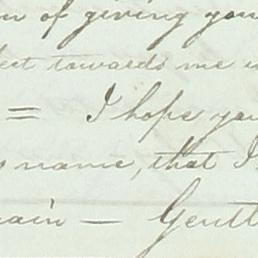 of giving you
towards me
= I hope you
name, that I
— Gentl